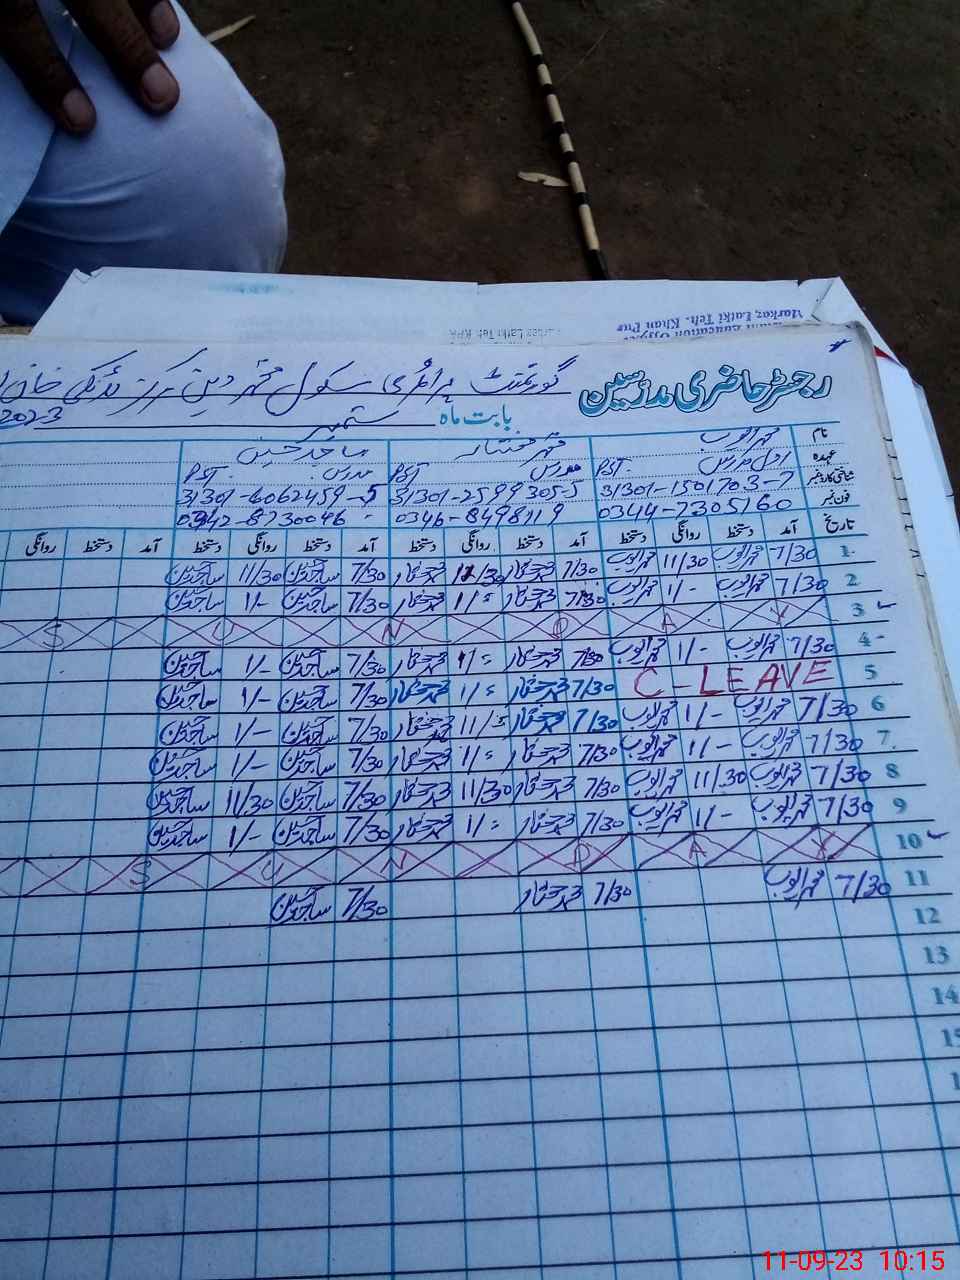 Education Officer
Markaz Latki Teh. Khan Pur
رجسٹر حاضری مدرسین
گورنمنٹ پرائمری سکول محمد دین مرکز لاٹکی خان
بابت ماہ ستمبر 2023
نام محمد ایوب محمد مختار ساجد حسین
عہدہ PST. مدرس PST مدرس PST.
شناختی کارڈ نمبر 31301-1501703-7 31301-2599305-5 31301-6062459-5
فون نمبر 0344-7305160 0346-8498119 0342-8730046
تاریخ آمد دستخط روانگی دستخط آمد دستخط روانگی دستخط آمد دستخط روانگی دستخط آمد دستخط روانگی
1 7/30 محمد ایوب 11/30 محمد ایوب 7/30 محمد مختار 11/30 محمد مختار 7/30 ساجد حسین 11/30 ساجد حسین
2 7/30 محمد ایوب 1/- محمد ایوب 7/30 محمد مختار 1/= محمد مختار 7/30 ساجد حسین 1/- ساجد حسین
3 SUNDAY
4 7/30 محمد ایوب 1/- محمد ایوب 7/30 محمد مختار 1/= محمد مختار 7/30 ساجد حسین 1/- ساجد حسین
5 C-LEAVE 7/30 محمد مختار 1/= محمد مختار 7/30 ساجد حسین 1/- ساجد حسین
6 7/30 محمد ایوب 1/- محمد ایوب 7/30 محمد مختار محمد مختار 7/30 ساجد حسین 1/- ساجد حسین
7 7/30 محمد ایوب 1/- محمد ایوب 7/30 محمد مختار 1/= محمد مختار 7/30 ساجد حسین 1/- ساجد حسین
8 7/30 محمد ایوب 11/30 محمد ایوب 7/30 محمد مختار 11/30 محمد مختار 7/30 ساجد حسین 11/30 ساجد حسین
9 7/30 محمد ایوب 1/- محمد ایوب 7/30 محمد مختار 1/= محمد مختار 7/30 ساجد حسین 1/- ساجد حسین
10 SUNDAY
11 7/30 محمد ایوب 7/30 محمد مختار 7/30 ساجد حسین
12
13
14
11-09-23 10:15